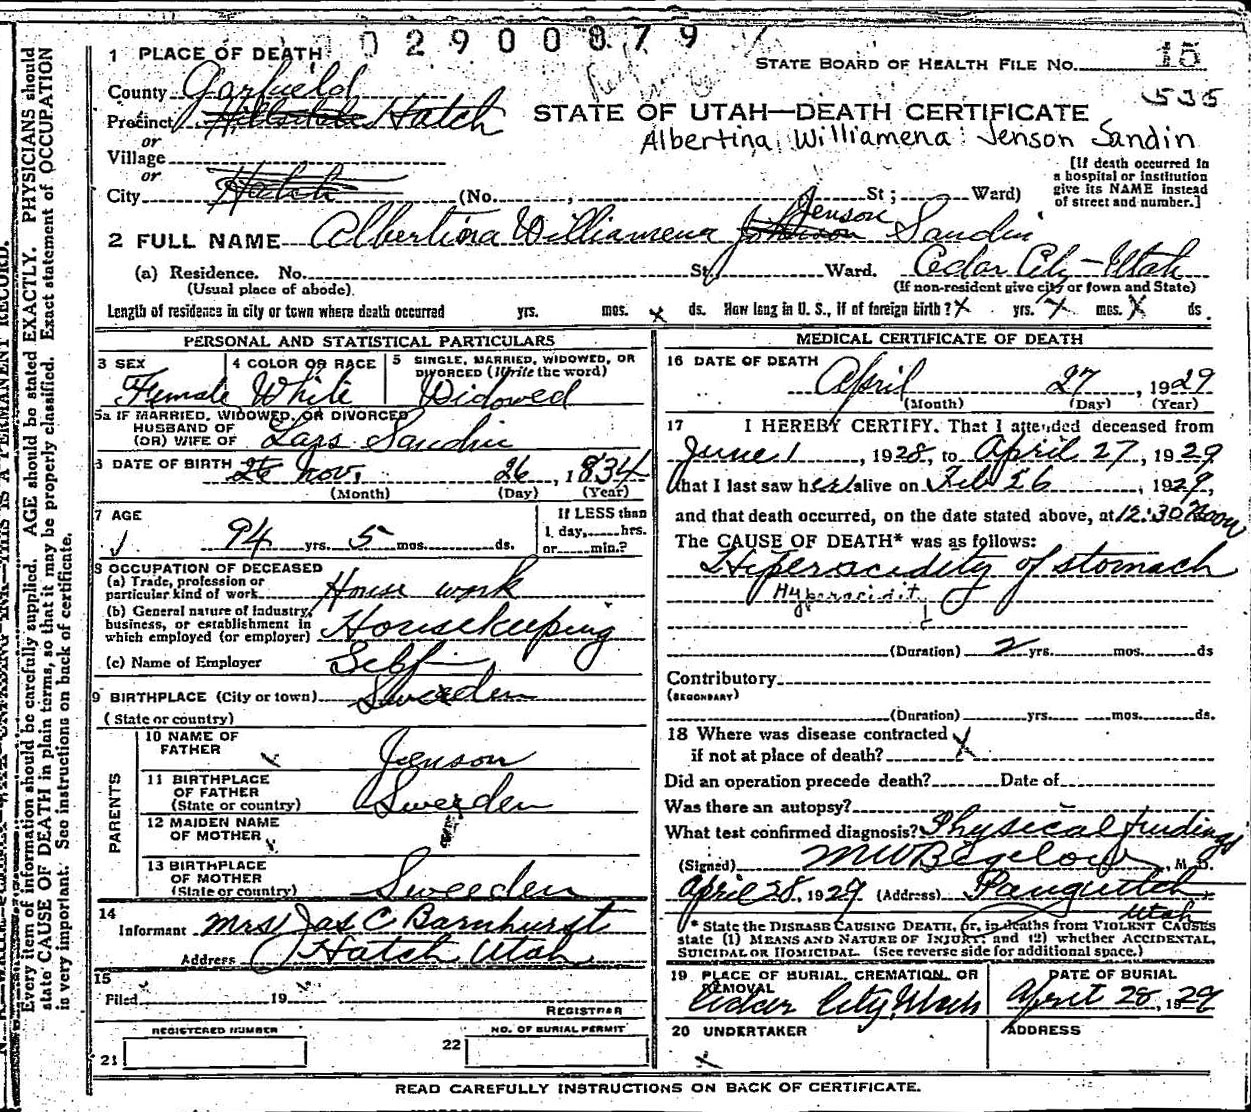 02900879
1 PLACE OF DEATH
STATE BOARD OF HEALTH FILE NO. 15
County Garfield
535
Precinct Hillsdale Hatch
STATE OF UTAH—DEATH CERTIFICATE
or
Albertina Williamena Jenson Sandin
Village
or
City Hatch (No. , St; Ward)
[If death occurred in
a hospital or institution
give its NAME instead
of street and number.]
Jenson
2 FULL NAME Albertina Williamena Johnson Sandin
(a) Residence. No. St, Ward. Cedar City-Utah
(Usual place of abode)
(If non-resident give city or town and State)
Length of residence in city or town where death occurred yrs. mos. x ds. How long in U. S., if of foreign birth? x yrs. x mos. x ds.
PERSONAL AND STATISTICAL PARTICULARS
3 SEX
Female
4 COLOR OR RACE
White
5 SINGLE, MARRIED, WIDOWED, OR
DIVORCED (Write the word)
Widowed
5a IF MARRIED, WIDOWED, OR DIVORCED
HUSBAND OF
(OR) WIFE OF Lars Sandin
6 DATE OF BIRTH 26 Nov. 26, 1834
(Month) (Day) (Year)
7 AGE
94 yrs. 5 mos. ds.
If LESS than
1 day, hrs.
or min.?
8 OCCUPATION OF DECEASED
(a) Trade, profession or
particular kind of work House work
(b) General nature of Industry,
business, or establishment in
which employed (or employer) Housekeeping
(c) Name of Employer Self
9 BIRTHPLACE (City or town) Sweeden
(State or country)
PARENTS
10 NAME OF
FATHER x Jenson
11 BIRTHPLACE
OF FATHER
(State or country) Sweeden
12 MAIDEN NAME
OF MOTHER
13 BIRTHPLACE
OF MOTHER
(State or country) Sweeden
14
Informant Mrs Jas C Barnhurst
Address Hatch Utah
15
Filed 19
REGISTRAR
REGISTERED NUMBER
21
NO. OF BURIAL PERMIT
22
MEDICAL CERTIFICATE OF DEATH
16 DATE OF DEATH
April 27, 1929
(Month) (Day) (Year)
17 I HEREBY CERTIFY. That I attended deceased from
June 1, 1928, to April 27, 1929
that I last saw her alive on Feb 26, 1929,
and that death occurred, on the date stated above, at 12:30 Noon
The CAUSE OF DEATH* was as follows:
Hiperacidity of stomach
Hyperacidity
(Duration) 2 yrs. mos. ds
Contributory
(SECONDARY)
(Duration) yrs. mos. ds.
18 Where was disease contracted
if not at place of death? x
Did an operation precede death? Date of
Was there an autopsy?
What test confirmed diagnosis? Physical findings
(Signed) M W Bigelow, M. D.
April 28, 1929 (Address) Panguitch
Utah
* State the DISEASE CAUSING DEATH, or, in deaths from VIOLENT CAUSES
state (1) MEANS AND NATURE OF INJURY; and (2) whether ACCIDENTAL,
SUICIDAL OR HOMICIDAL. (See reverse side for additional space.)
19 PLACE OF BURIAL, CREMATION, OR
REMOVAL
Cedar City Utah
DATE OF BURIAL
April 28, 1929
20 UNDERTAKER
x
ADDRESS
READ CAREFULLY INSTRUCTIONS ON BACK OF CERTIFICATE.
Every item of information should be carefully supplied. AGE should be stated EXACTLY. PHYSICIANS should
state CAUSE OF DEATH in plain terms, so that it may be properly classified. Exact statement of OCCUPATION
is very important. See instructions on back of certificate.